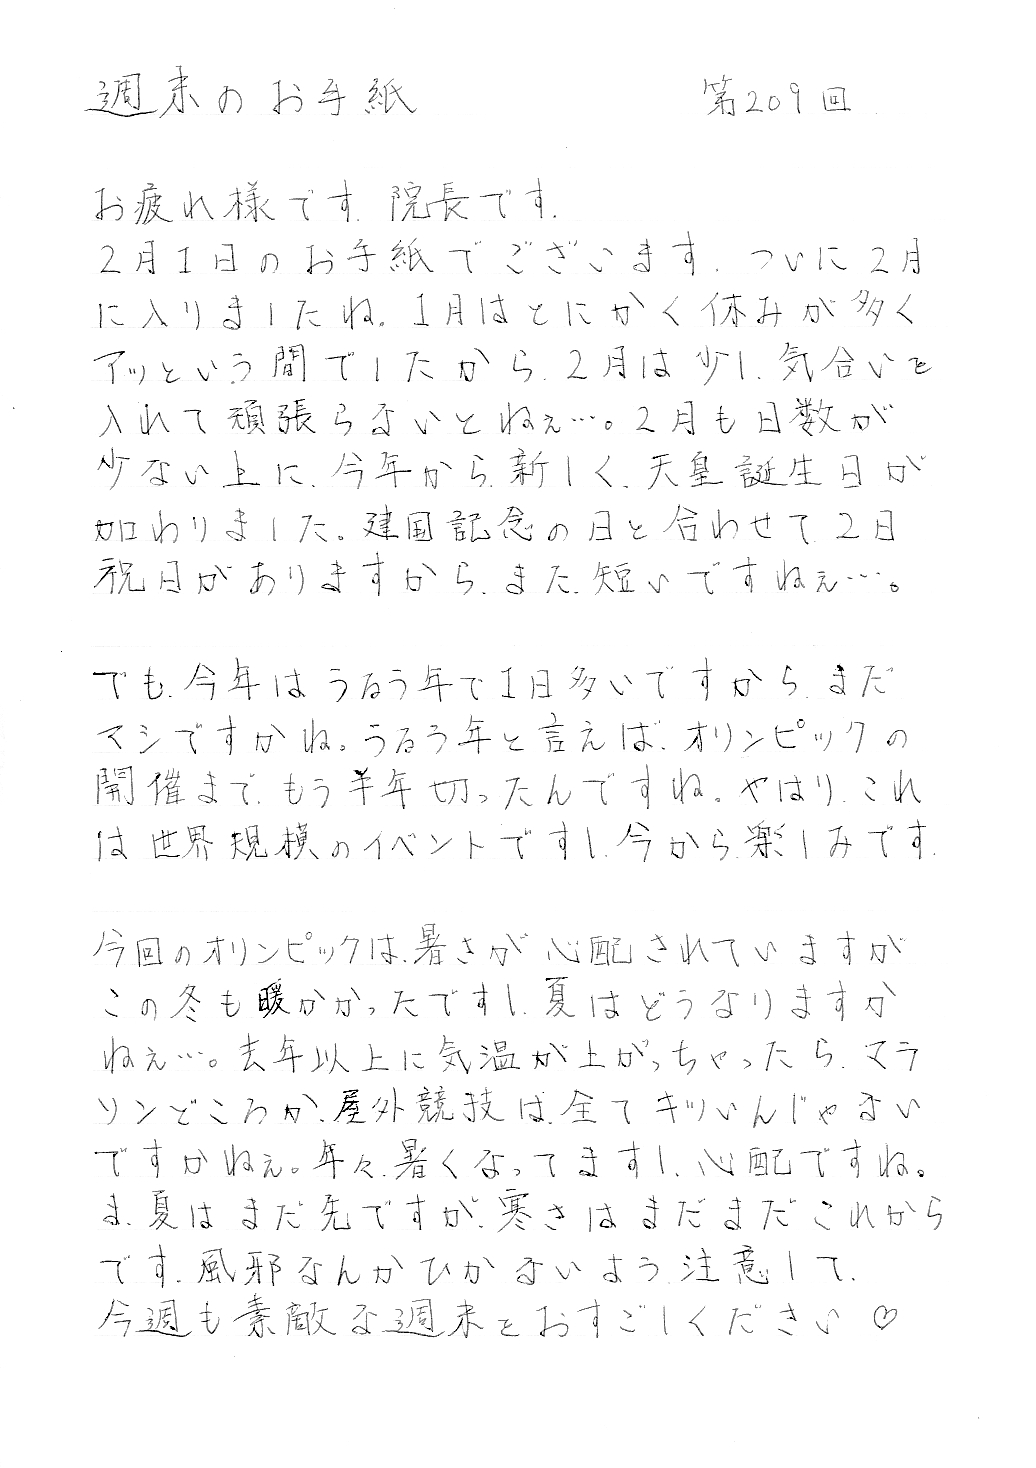 週末のお手紙 第209回
お疲れ様です.院長です.
2月1日のお手紙でございます.ついに2月
に入りましたね。1月はとにかく休みが多く
アッという間でしたから.2月は少し.気合いを
入れて頑張らないとねぇ…。2月も日数が
少ない上に.今年から.新しく.天皇誕生日が
加わりました。建国記念の日と合わせて.2日
祝日がありますから.また.短いですねぇ…。
でも.今年はうるう年で1日多いですから.まだ
マシですかね。うるう年と言えば.オリンピックの
開催まで.もう半年切ったんですね。やはり.これ
は世界規模のイベントですし.今から.楽しみです.
今回のオリンピックは.暑さが心配されていますが
この冬も暖かかったですし.夏はどうなりますか
ねぇ…。去年以上に気温が上がっちゃったら.マラ
ソンどころか.屋外競技は.全てキツいんじゃない
ですかねぇ。年々.暑くなってますし.心配ですね。
ま.夏はまだ先ですが.寒さはまだまだこれから
です.風邪なんかひかないよう.注意して.
今週も素敵な週末をおすごしください♡